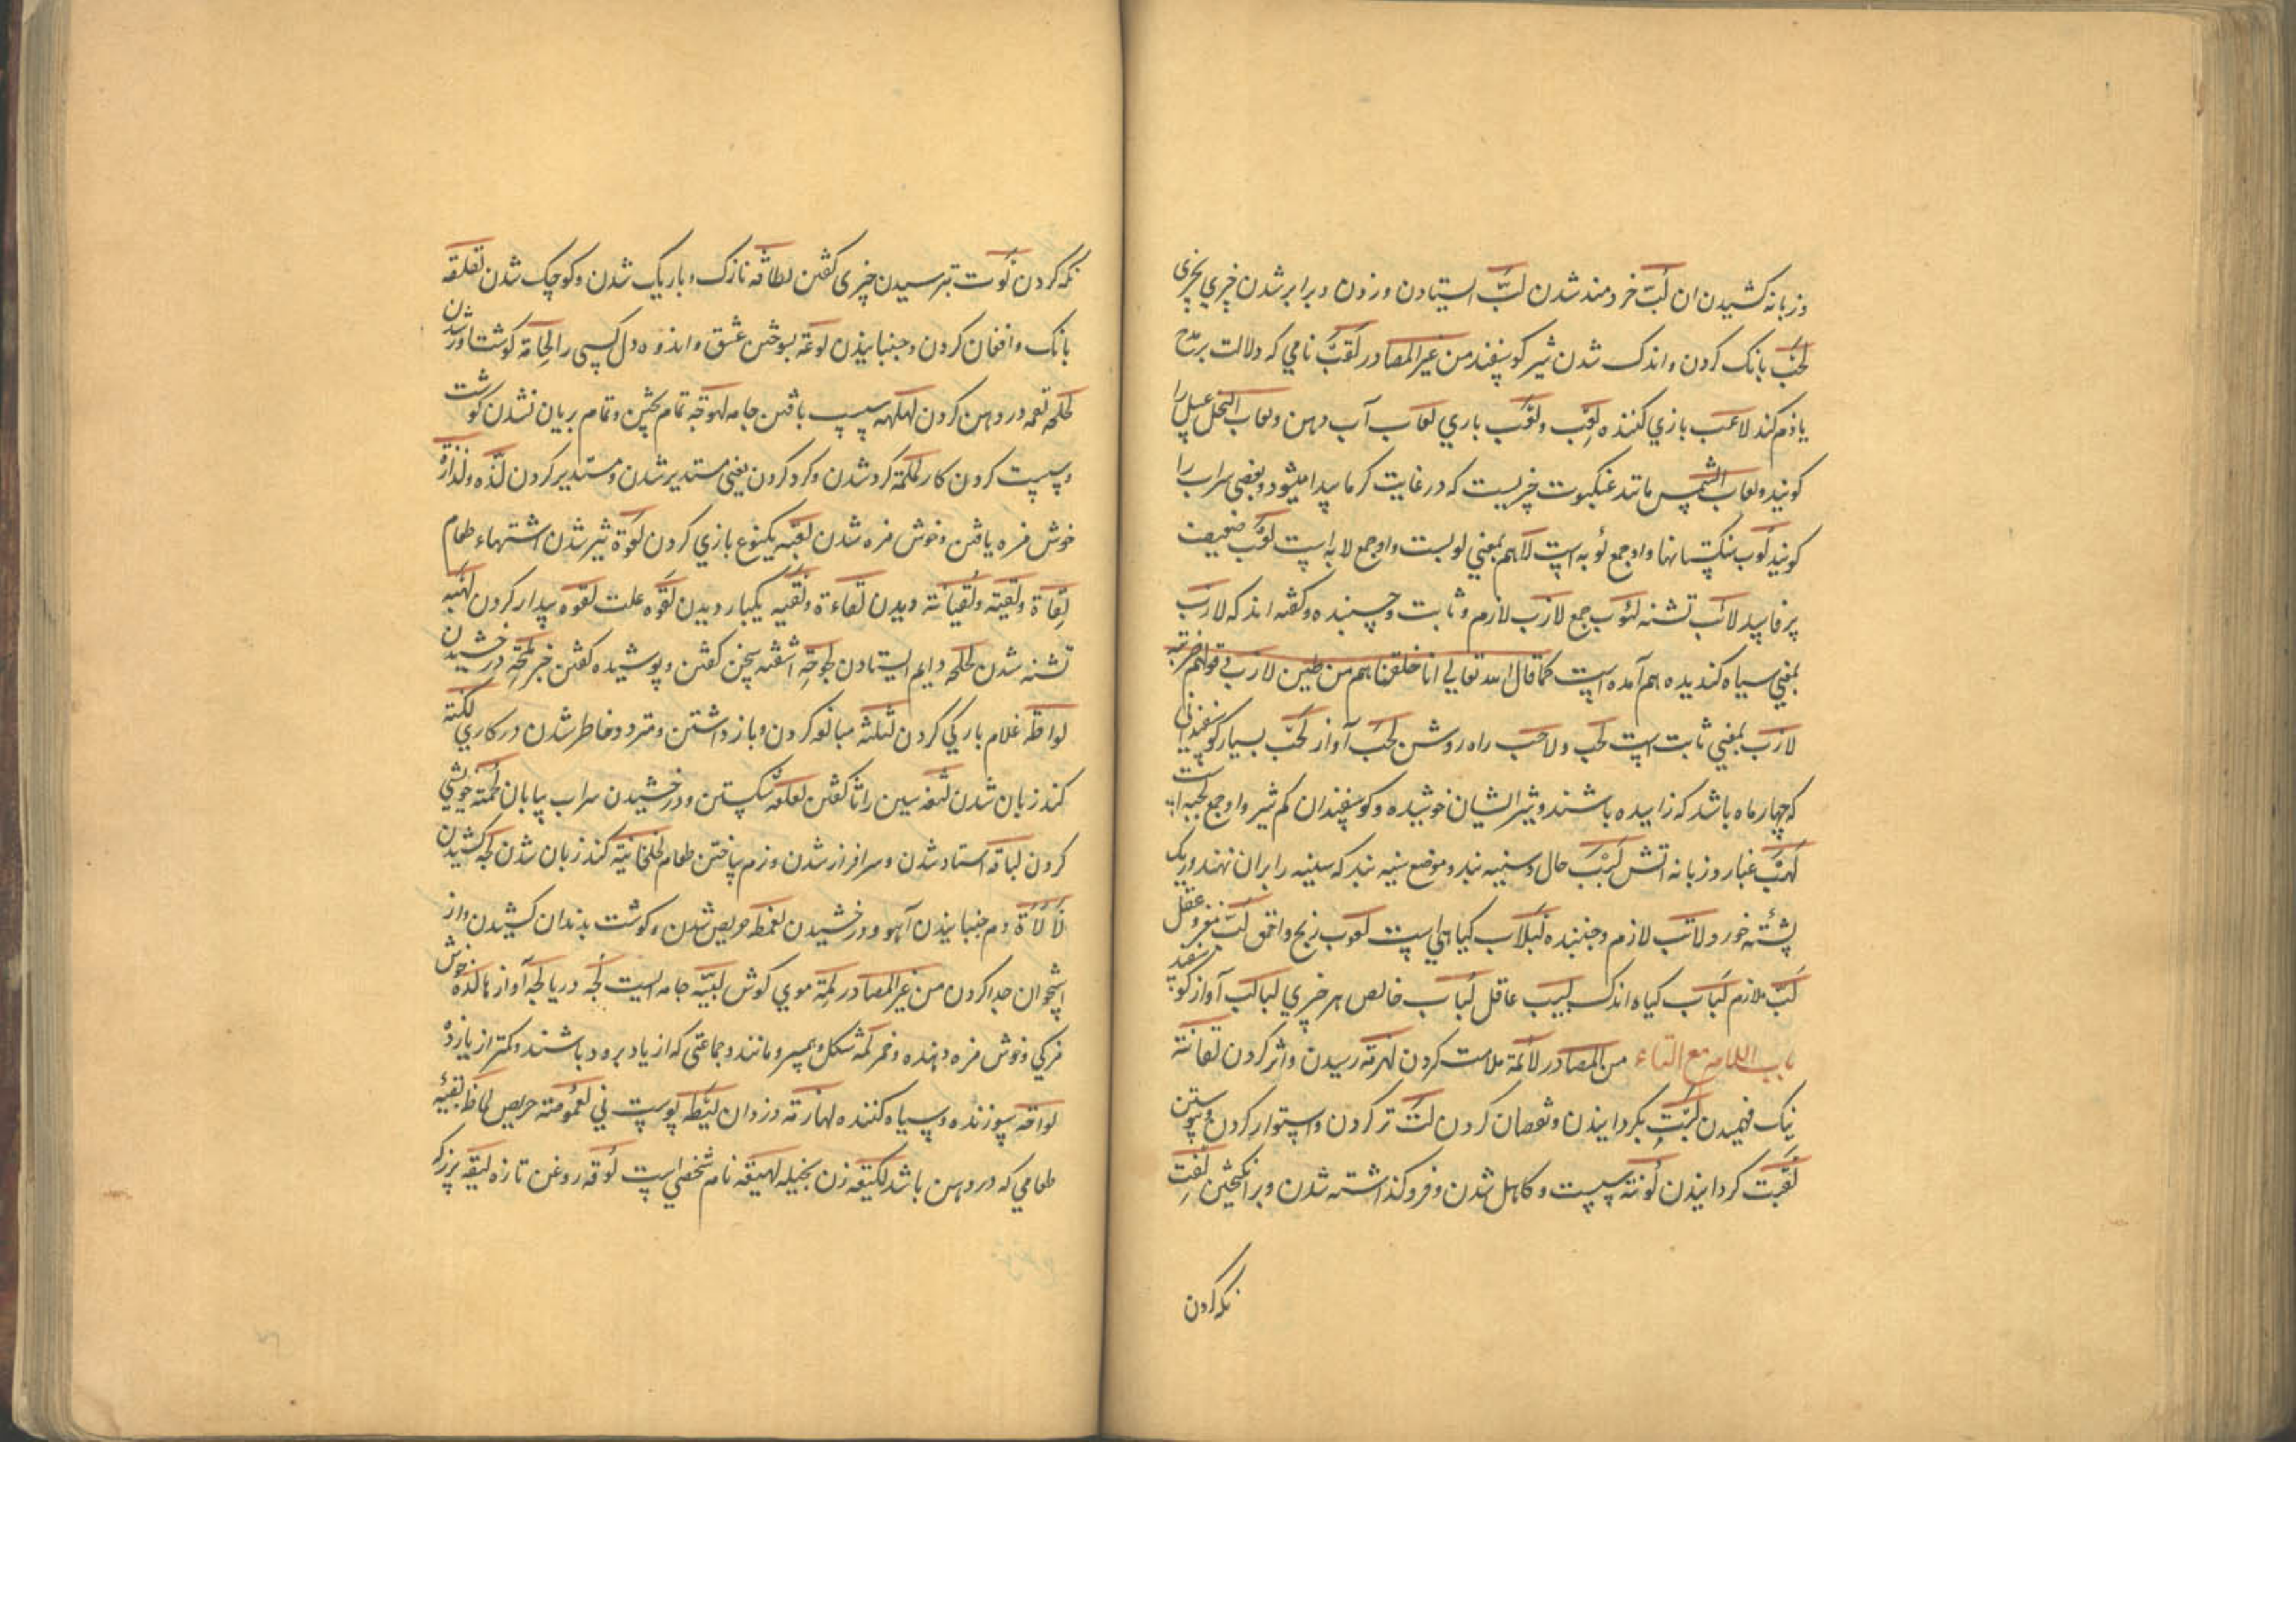 و زبانه کشیدن ان لَبّ خردمند شدن لَبّ ایستادن و زدن و برابر شدن چیزي بچیزی
لَجَب بانک کردن و اندک شدن شیر کوسفند من غیر المصادر لَقَب نامي که دلالت بر مدح
یا ذم کند لاعب بازي کننده لَعِب ولَعْب بازي لعاب آب دهن و لعاب النحل عسل را
کویند و لعاب الشمس مانند عنکبوت چیزیست که در غایت کرما پیدا میشود و بعضي سراب را
کویند لُوب سنکستانها و او جمع لُوبه است لاب هم بمعني لوبست و او جمع لابه است ضعیف
لائب تشنه لُئوب جمع لازب لازم و ثابت و چسبنده و کفته اند که لازب
بمعني سیاه کندیده هم آمده است کما قال الله تعالي انا خلقناهم من طین لازب في قولهم ضربة
لازب بمعني ثابت است لحب ولاحب راه روشن لجب آواز لجب بسیار کوسفندي
که چهار ماه باشد که زاییده باشند و شیر ایشان خوشیده و کوسفندان کم شیر و او جمع لجبه است
لَهَب غبار و زبانه اتش لَبَب حال و سینه بند و موضع سینه بند که سینه را بران نهند و ریک
پشته خورد لاتب لازم و جنبنده لَبلاب کیاهي است لعوب زنخ و احمق لُبّ مغز و عقل
لَبّ ملازم لَبَاب کیاه اندک لبیب عاقل لُبَاب خالص هر چیزي لبالب آواز کوسفند
باب اللام مع التاء من المصادر لائمة ملامت کردن رسیدن و اثر کردن لقانة
نیک فهمیدن بکردانیدن و نقصان کردن لَتّ تر کردن و استوار کردن و پیوستن
کردانیدن لُوثة سست و کاهل شدن و فروکذاشته شدن و برانکیختن لَفت
نکه کردن
نکه کردن لَوت بترسیدن چیزی کفتن لطافة نازک و باریک شدن و کوچک شدن لقلقة
بانک و افغان کردن و جنبانیدن لوعة بسوختن عشق و اندوه دل کسی را لحامة کوشتاور شدن
لجلجة لقمه در دهن کردن لهلهة سست بافتن جامه لهوجة تمام نپختن و تمام بریان نشدن کوشت
و سست کردن کار لملمة کرد شدن و کرد کردن یعني مستدیر شدن و مستدیر کردن لذّة ولذاذة
خوش مزه یافتن و خوش مزه شدن لعبة یکنوع بازي کردن لعوة تیز شدن اشتهاء طعام
لِقاءة ولقیة ولقیانة دیدن لقاءة ولقیة یکبار دیدن لقوة علت لقوه پیدار کردن لهبة
تشنه شدن لحلحة دایم ایستادن لحوجة اشفته سخن کفتن و پوشیده کفتن خبر لمحة درخشیدن
لواطة غلام بارکي کردن لثلثة مبالغه کردن و باز داشتن و متردد خاطر شدن در کاري لکنة
کند زبان شدن لثغة سین را ثا کفتن لعلعة شکستن و درخشیدن سراب بیابان لحمة خویشي
کردن لباقة استاد شدن و سرافراز شدن و نرم ساختن طعام لخلخانیة کند زبان شدن لجة کشیدن
لألأة دم جنبانیدن آهو و درخشیدن لعمظة حریص شدن و کوشت بدندان کشیدن و از
استخوان جدا کردن من غیر المصادر لمّة موي کوش لبیبة جامه ایست لُجّة دریا لَجّة آوازها لذّة خوش
مزکي و خوش مزه دهنده و خمر لُمَة شکل و همسر و مانند و جماعتي که از یاد بره ده باشند و کمتر از یازده
لواحة سوزنده و سیاه کننده لهازمة دزدان لیطة پوست ني لعمومة حریص لماظة بقیه
طعامي که در دهن باشد لکیعة زن بخیله لهیعة نام شخصي است لُوقة روغن تازه